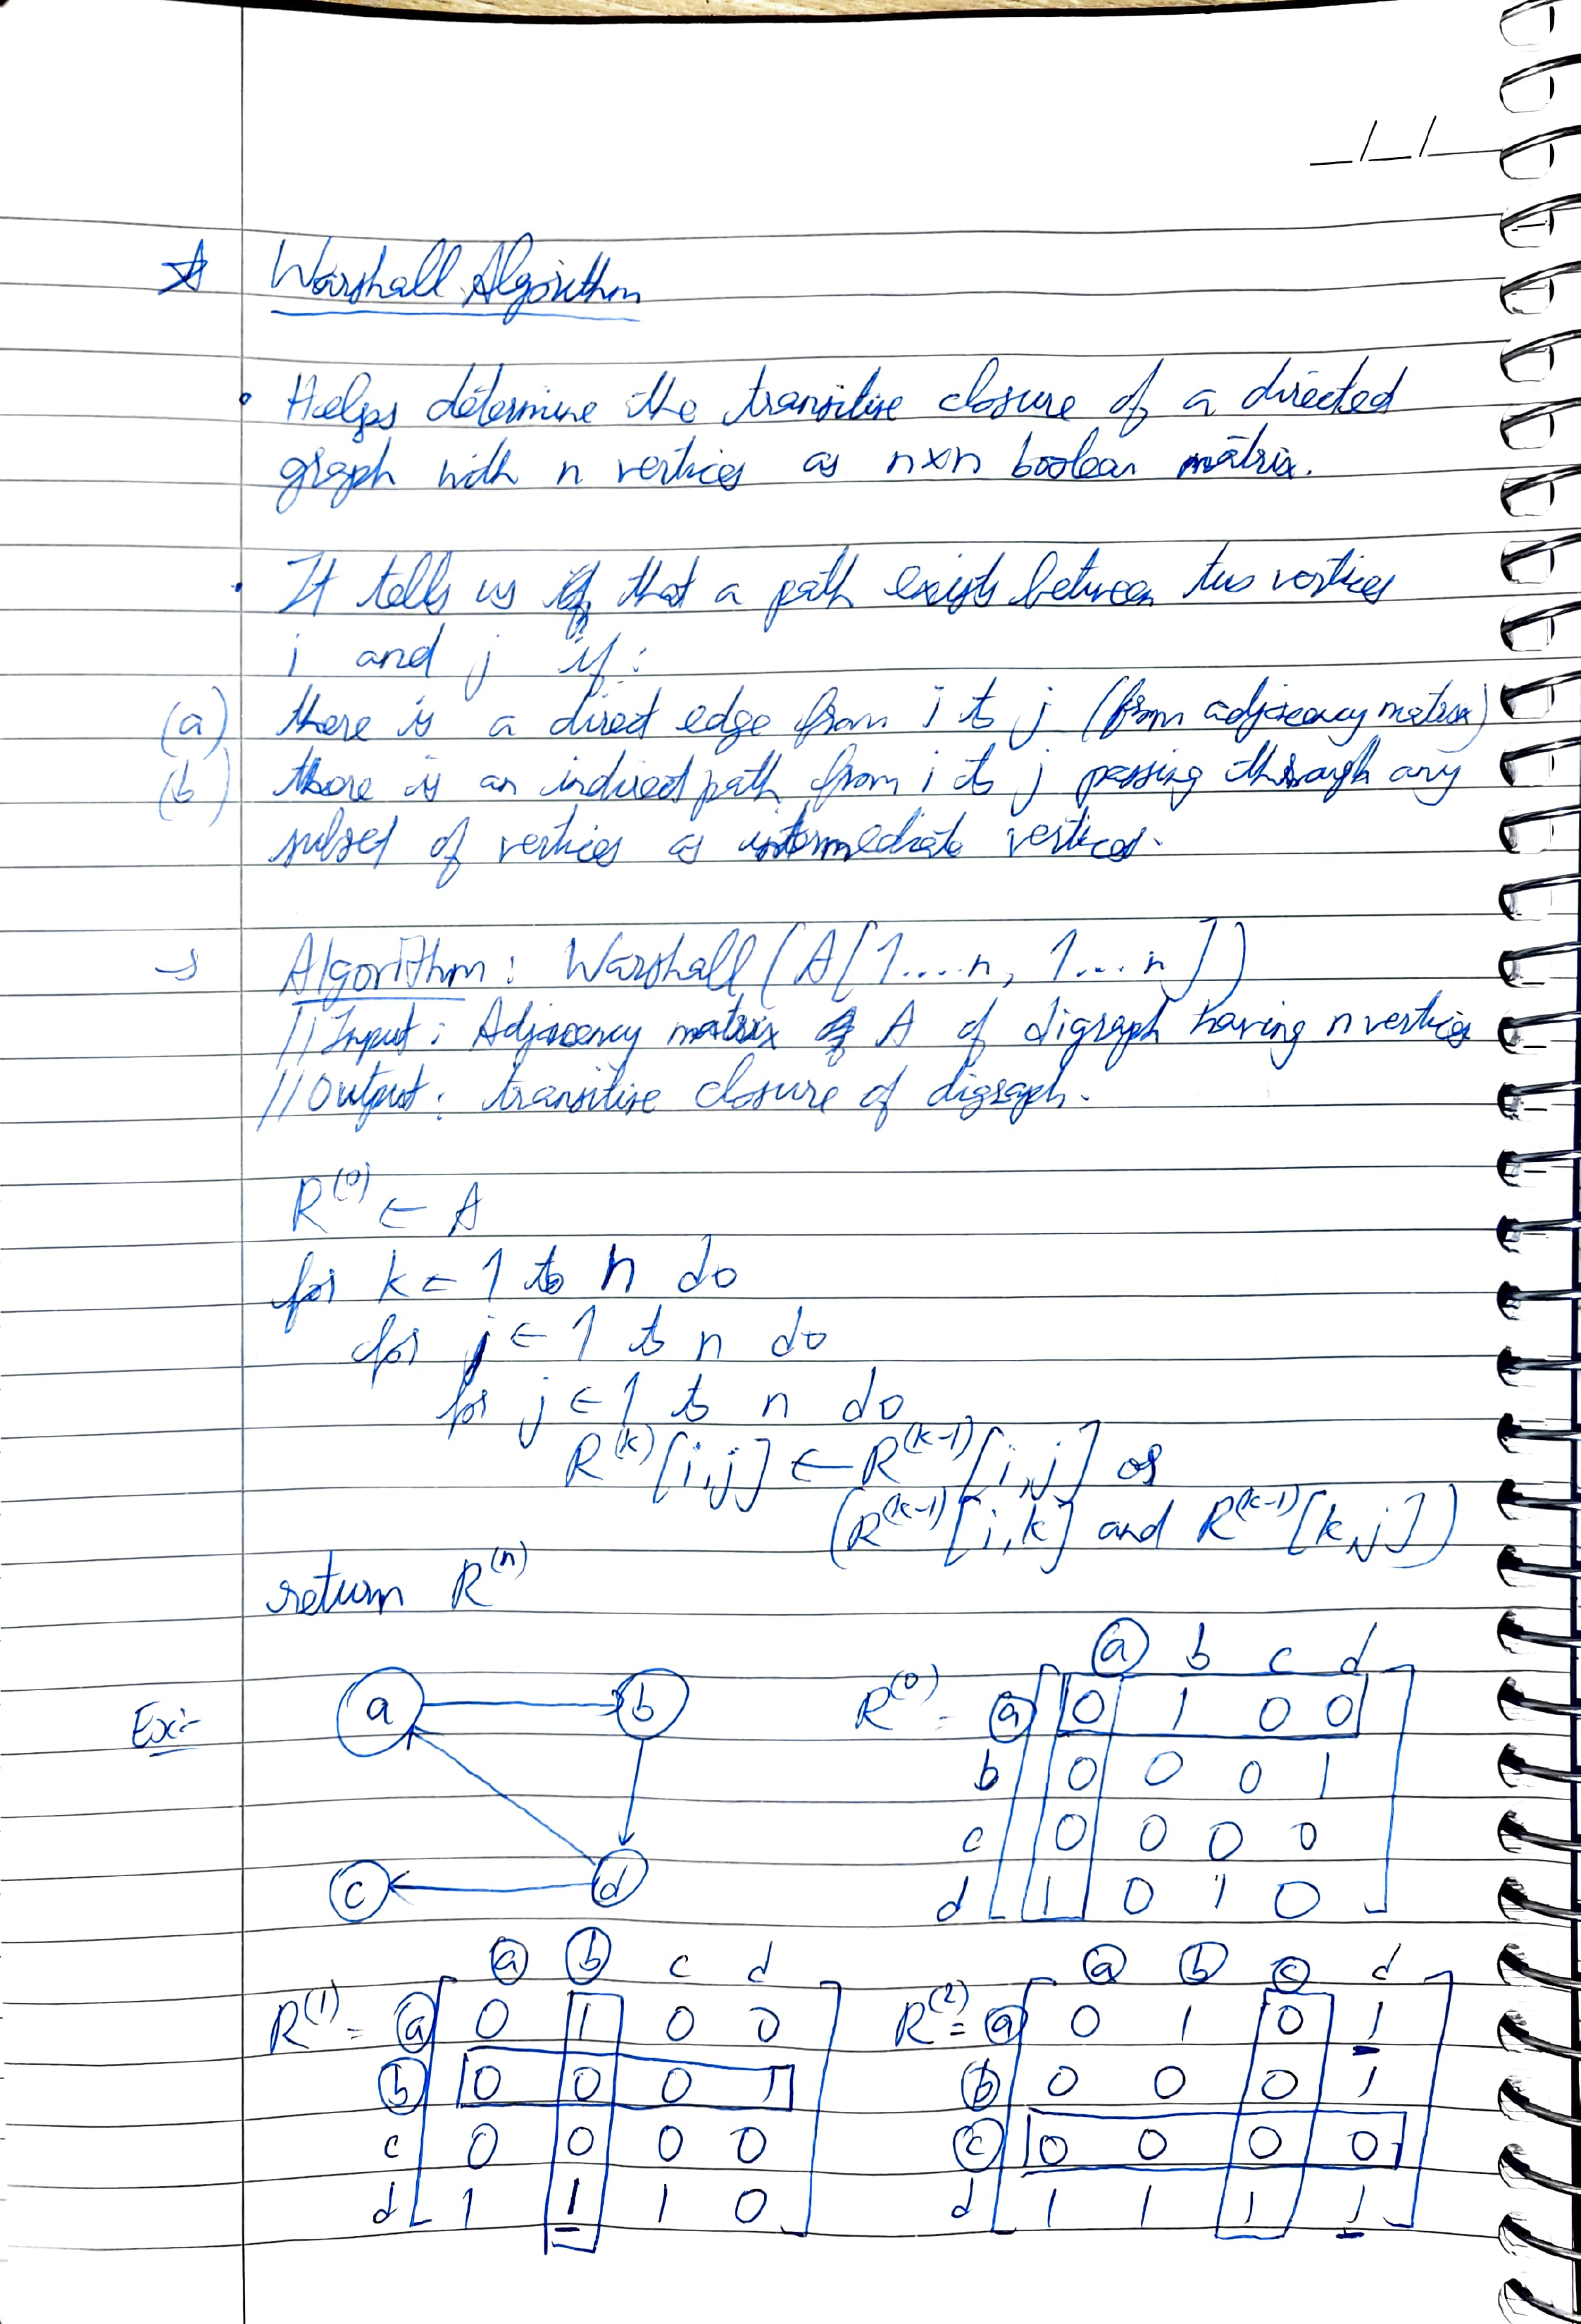 _/_/_
☆ Warshall Algorithm
• Helps determine the transitive closure of a directed
graph with n vertices as n×n boolean matrix.
• It tells us that a path exists between two vertices
i and j if:
(a) there is a direct edge from i to j (from adjacency matrix)
(b) there is an indirect path from i to j passing through any
subset of vertices as intermediate vertices.
→ Algorithm: Warshall (A[1....n, 1...n])
//Input: Adjacency matrix A of digraph having n vertices
//Output: transitive closure of digraph.
R⁽⁰⁾ ← A
for k ← 1 to n do
for i ← 1 to n do
for j ← 1 to n do
R⁽ᵏ⁾[i,j] ← R⁽ᵏ⁻¹⁾[i,j] or
(R⁽ᵏ⁻¹⁾[i,k] and R⁽ᵏ⁻¹⁾[k,j])
return R⁽ⁿ⁾
Ex:-
a b
c d
a b c d
R⁽⁰⁾ = a 0 1 0 0
b 0 0 0 1
c 0 0 0 0
d 1 0 1 0
a b c d
R⁽¹⁾ = a 0 1 0 0
b 0 0 0 1
c 0 0 0 0
d 1 1 1 0
a b c d
R⁽²⁾ = a 0 1 0 1
b 0 0 0 1
c 0 0 0 0
d 1 1 1 1